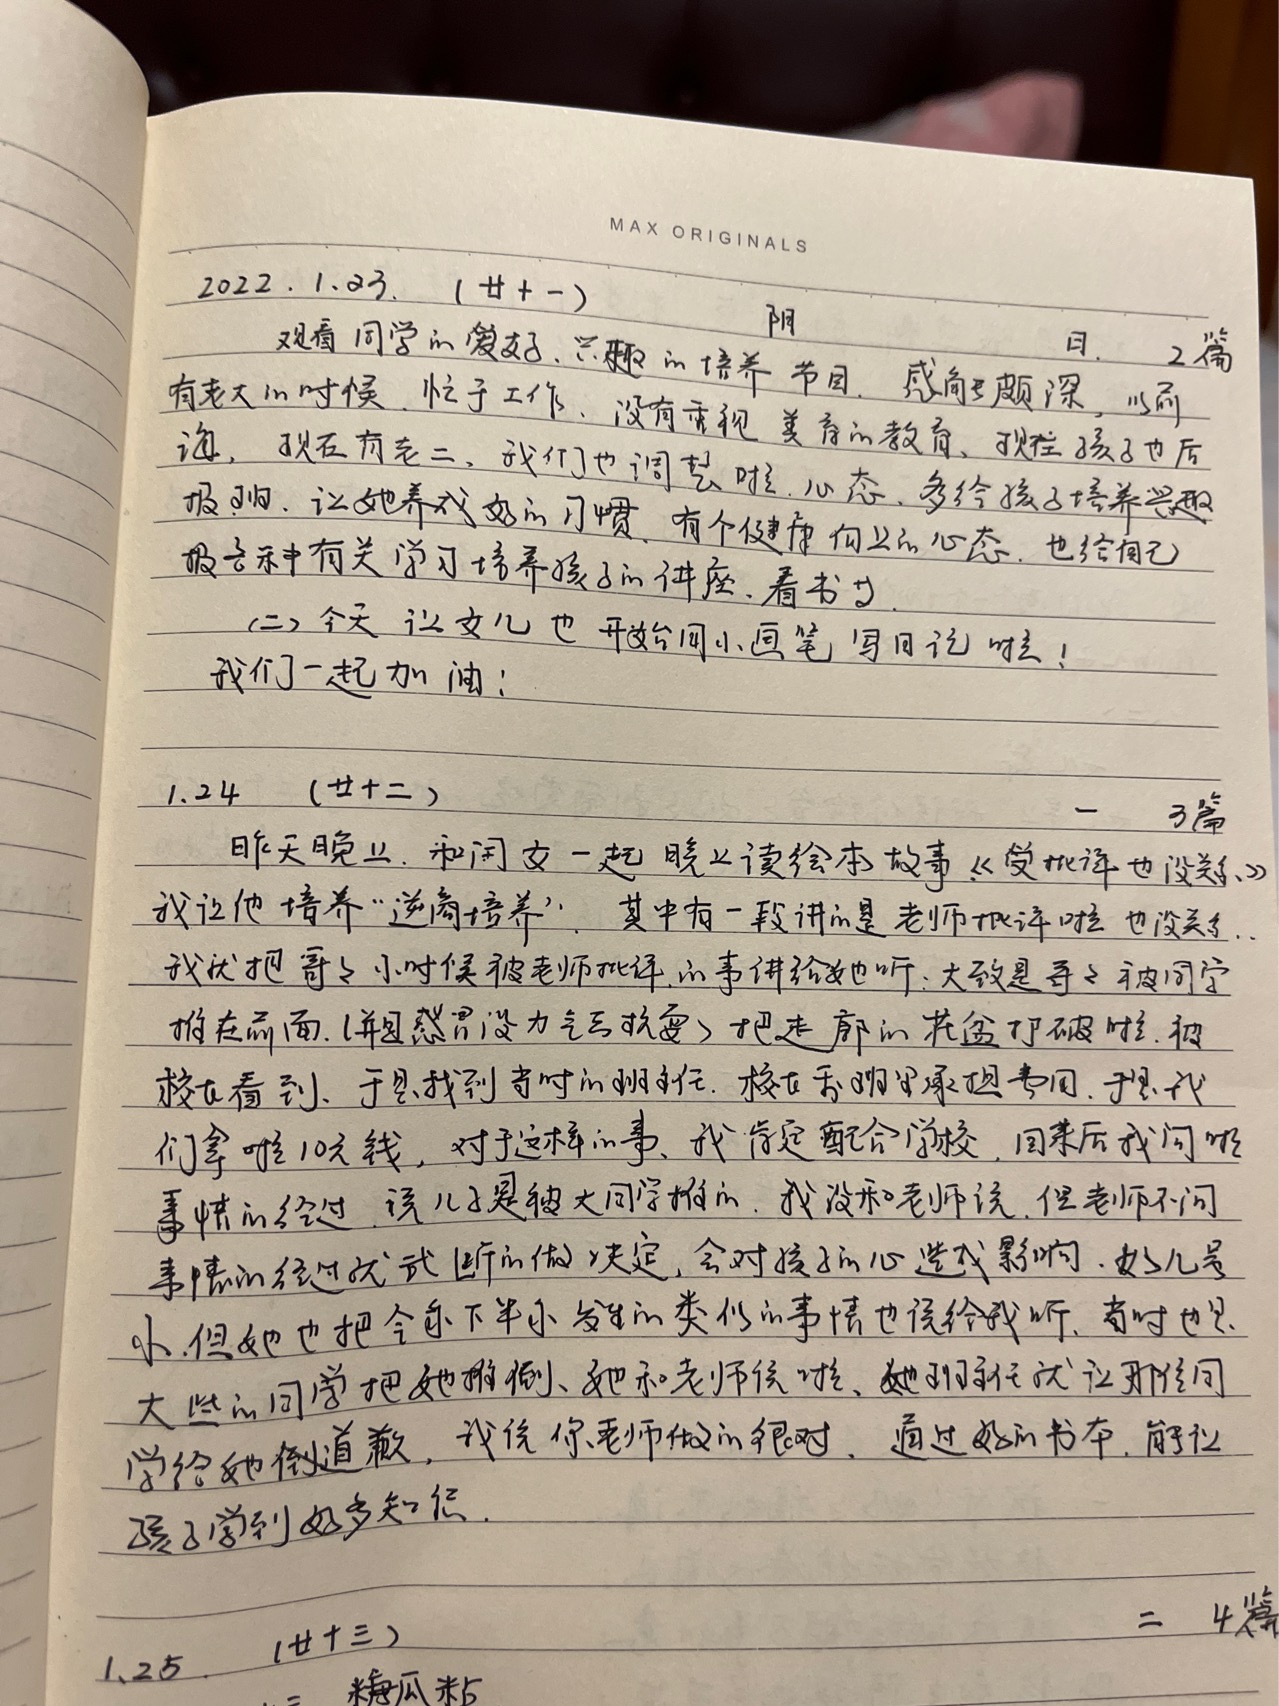 MAX ORIGINALS
2022.1.23. (廿十一) 阴 日. 2篇
观看同学的爱好、兴趣的培养节目. 感触颇深, 以前
有老大的时候. 忙于工作. 没有重视美育的教育、现在孩子也后
悔. 现在有老二、我们也调整啦心态. 多给孩子培养兴趣
报班. 让她养成好的习惯. 有个健康向上的心态. 也给自己
报音乐中有关学习培养孩子的讲座、看书
(二) 今天让女儿也开始用小画笔写日记啦!
我们一起加油!
1.24 (廿十二) 一 3篇
昨天晚上. 和闺女一起晚上读绘本故事《受批评也没关系》
我让他培养“逆商培养”. 其中有一段讲的是老师批评啦也没关系..
我就把哥々小时候被老师批评的事讲给她听、大致是哥々被同学
推在前面. (并且惯没力气) 把走廊的花盆打破啦. 被
校长看到、于是找到当时的班主任. 校长承担费用. 于是我
们拿啦10元钱, 对于这样的事、我肯定配合学校, 回来后我问啦
事情的经过. 说儿子是被大同学推的. 我没和老师说. 但老师不问
事情的经过就武断的做决定, 会对孩子的心造成影响. 女儿虽
小. 但她也把今年下半年发生的类似的事情也说给我听、当时也是
大些的同学把她推倒、她和老师说啦、她班主任就让那位同
学给她倒道歉, 我说你老师做的很对、通过好的书本. 能让
孩子学到好多知识.
1.25. (廿十三) 二 4篇
三 糖瓜粘